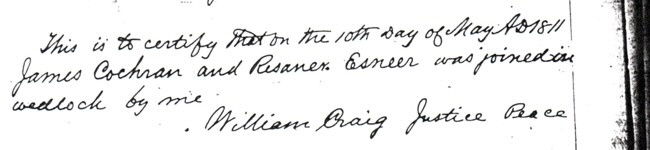 This is to certify that on the 10th Day of May AD 1811
James Cochran and Rosaner Esneer was joined in
wedlock by me
William Craig Justice Peace